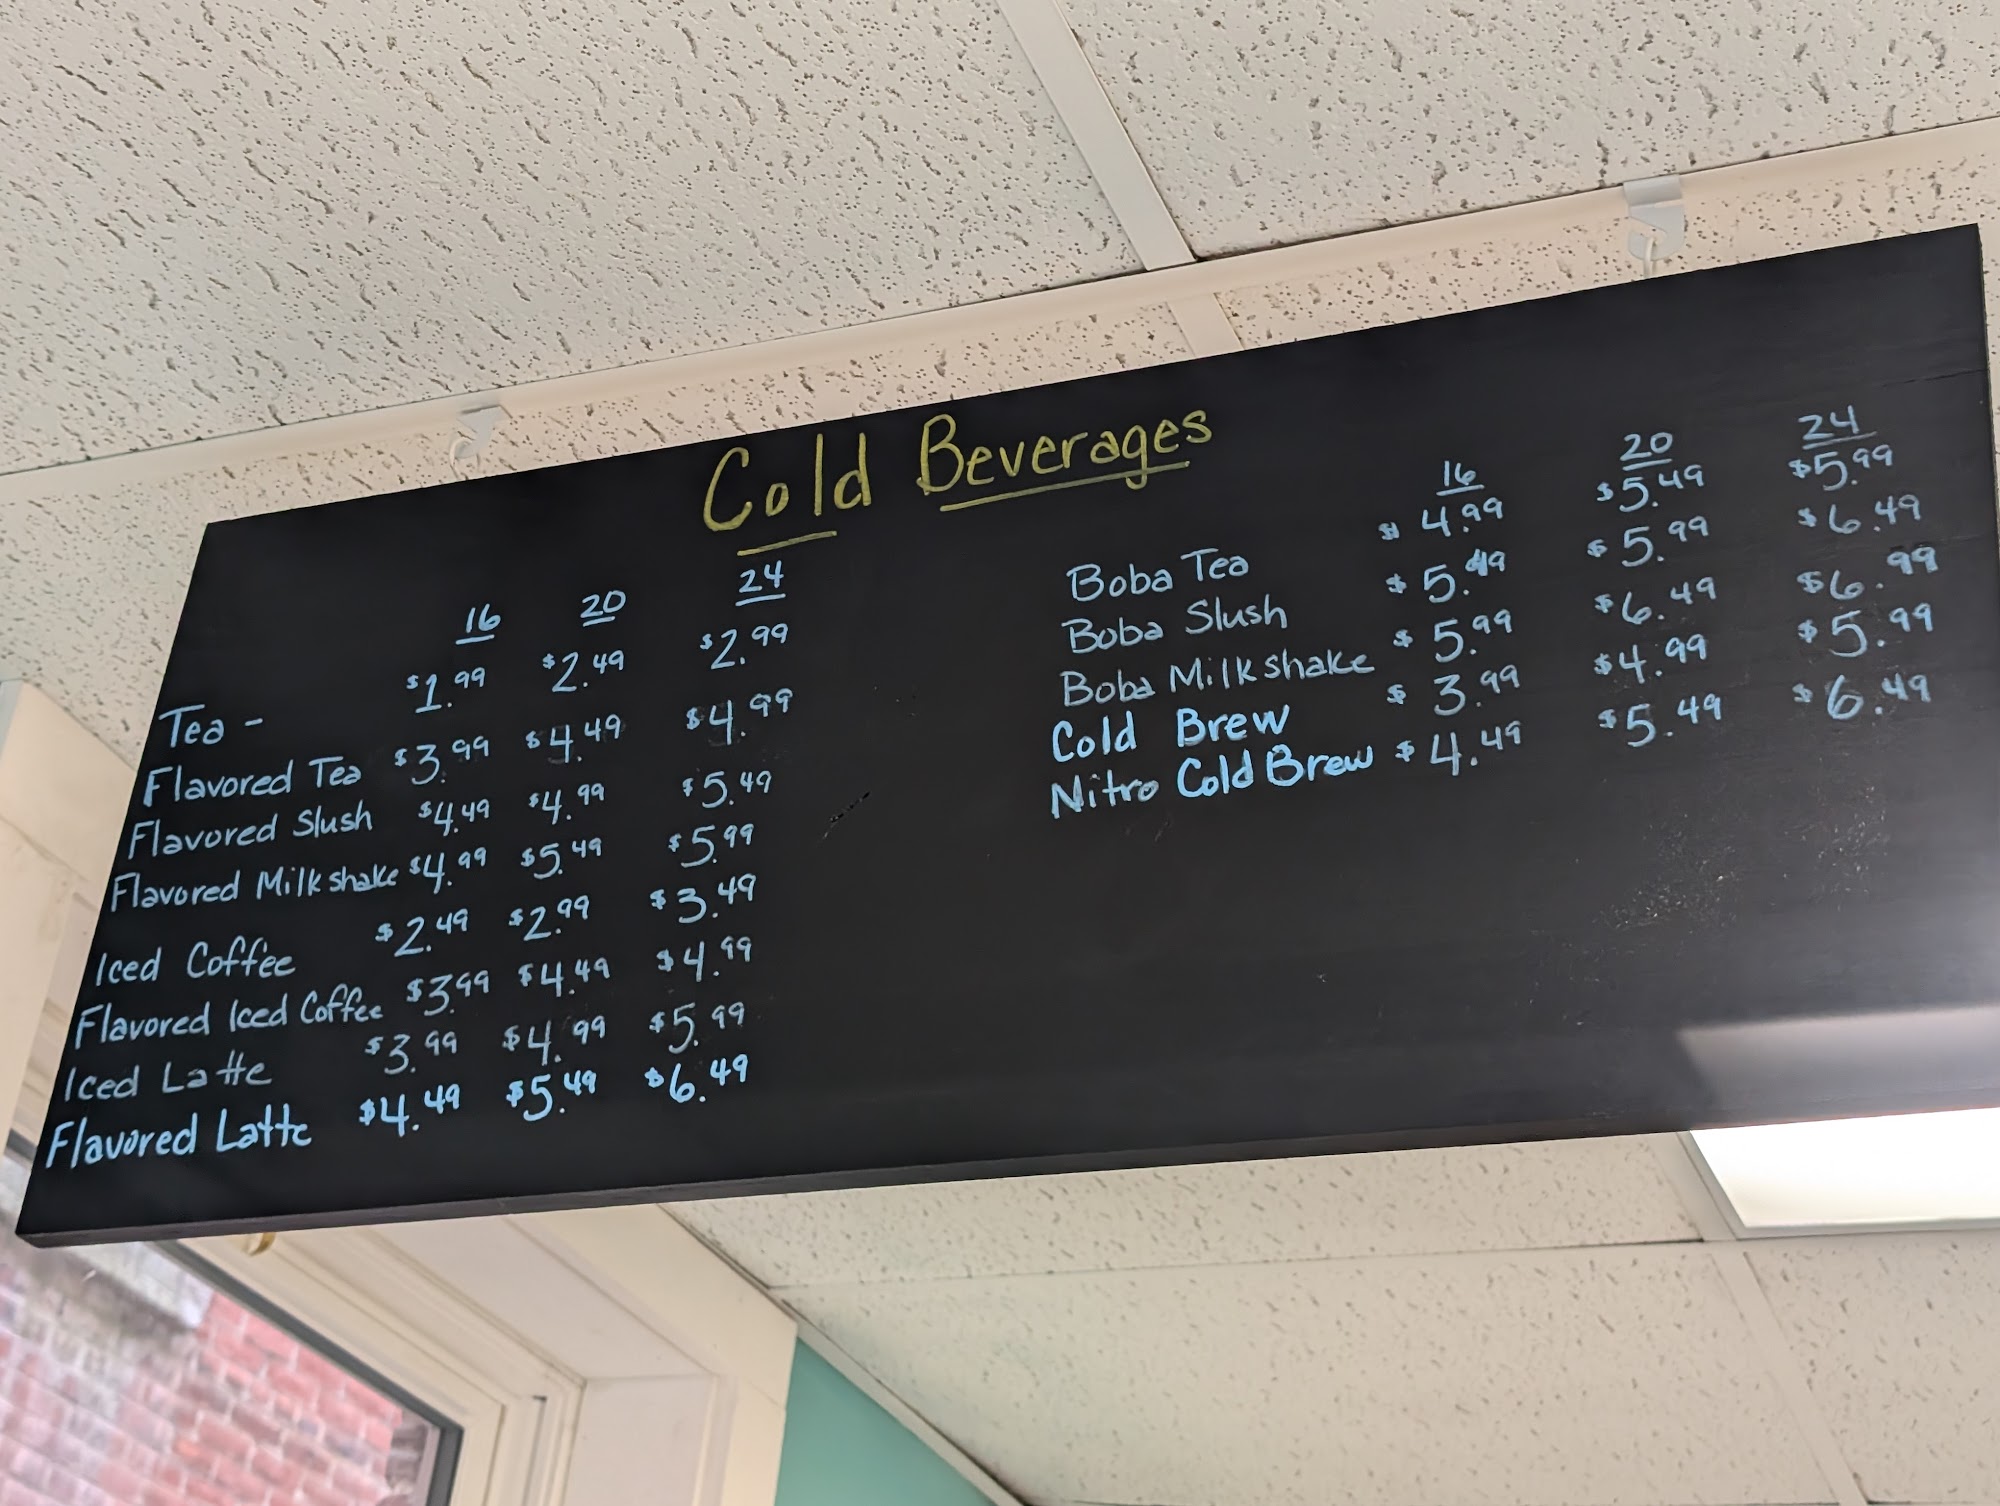 Cold Beverages
16 20 24
Tea - $1.99 $2.49 $2.99
Flavored Tea $3.99 $4.49 $4.99
Flavored Slush $4.49 $4.99 $5.49
Flavored Milkshake $4.99 $5.49 $5.99
Iced Coffee $2.49 $2.99 $3.49
Flavored Iced Coffee $3.99 $4.49 $4.99
Iced Latte $3.99 $4.99 $5.99
Flavored Latte $4.49 $5.49 $6.49
16 20 24
Boba Tea $4.99 $5.49 $5.99
Boba Slush $5.49 $5.99 $6.49
Boba Milkshake $5.99 $6.49 $6.99
Cold Brew $3.99 $4.99 $5.99
Nitro Cold Brew $4.49 $5.49 $6.49